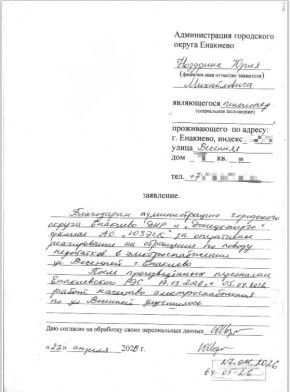 Администрация городского
округа Енакиево
Ноздрина Юрия
(фамилия имя отчество заявителя)
Михайловича
являющегося пенсионер
(социальное положение)
проживающего по адресу:
г. Енакиево, индекс
улица Весенняя
дом кв.
тел. +7
заявление.
Благодарим администрацию городского
округа Енакиево ДНР и
филиал АО за оперативное
реагирование на обращение по поводу
недостатков в электроснабжении
ул Весенней г. Енакиево
После произведённых персоналом
Енакиевского РЭС
работ качество электроснабжения
по ул Весенней улучшилось
Даю согласие на обработку своих персональных данных
«27» апреля 2026 г.